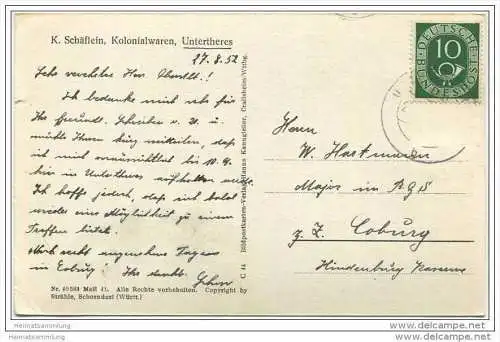 K. Schäflein, Kolonialwaren, Untertheres
27.8.52
Sehr verehrter Herr
Ich bedanke mich sehr für
Ihr freundl. Schreiben v. 21. u.
möchte Ihnen kurz mitteilen, daß
ich mich voraussichtlich bis 10.9.
hier in Untertheres aufhalten werde.
Ich hoffe jedoch, daß sich bald
wieder eine Möglichkeit zu einem
Treffen bietet.
Noch recht angenehme Tage
in Coburg! Ihr
Nr. 40584 Maß 41. Alle Rechte vorbehalten. Copyright by
Strähle, Schorndorf (Württ.)
C 44 Bildpostkarten-Verlag Hanns Kraugleder, Crailsheim-Wttbg.
DEUTSCHE BUNDESPOST
10
Herrn
W. Hartmann
Major im BGS
z. Z. Coburg
Hindenburg Kaserne
Heimatsammlung.de
Heimatsammlung.de